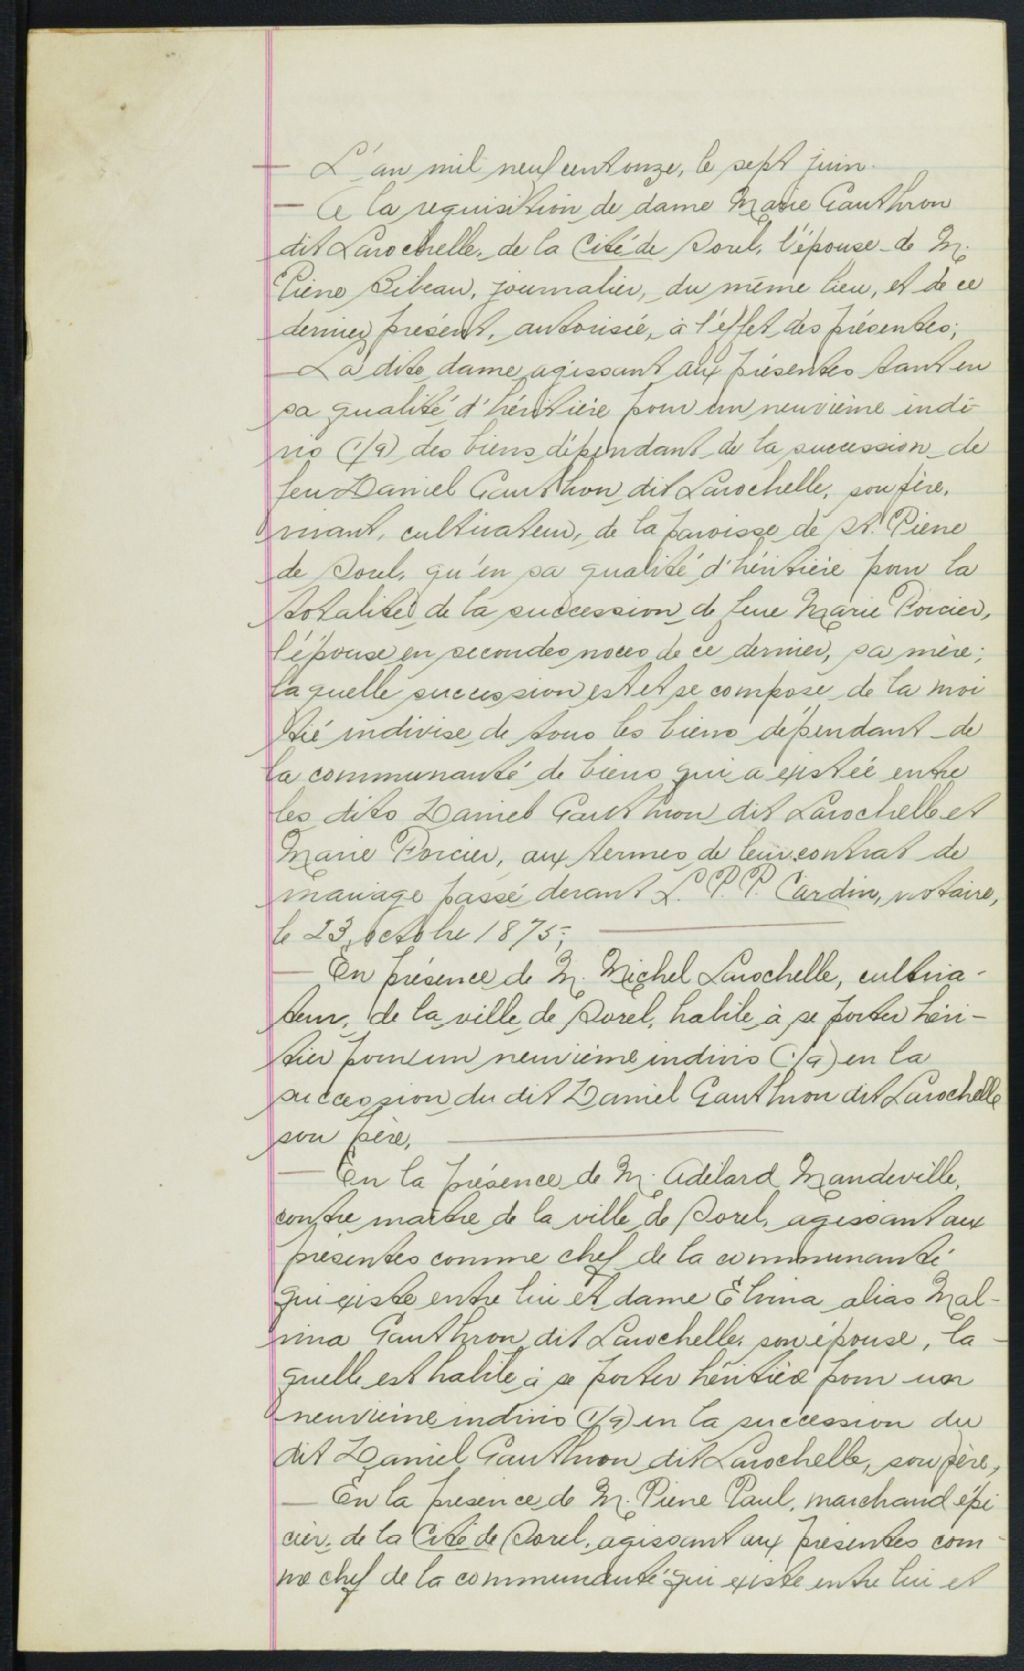 — L'an mil neuf cent onze, le sept juin.
— A la requisition de dame Marie Gauthron
dit Larochelle, de la Cité de Sorel, l'épouse de M.
Pierre Bibeau, journalier, du même lieu, et de ce
dernier présent, autorisée, à l'effet des présentes;
— La dite dame agissant aux présentes tant en
sa qualité d'héritière pour un neuvième indi-
vis (1/9) des biens dépendant de la succession de
feu Daniel Gauthron dit Larochelle, son père,
vivant, cultivateur, de la paroisse de St. Pierre
de Sorel, qu'en sa qualité d'héritière pour la
totalité de la succession de feue Marie Forcier,
l'épouse en secondes noces de ce dernier, sa mère;
laquelle succession est et se compose de la moi
tié indivise de tous les biens dépendant de
la communauté de biens qui a existée entre
les dits Daniel Gauthron dit Larochelle et
Marie Forcier, aux termes de leur contrat de
mariage passé devant L. P. P. Cardin, notaire,
le 23 octobre 1875;
— En présence de M. Michel Larochelle, cultiva-
teur, de la ville de Sorel, habile à se porter héri-
tier pour un neuvième indivis (1/9) en la
succession du dit Daniel Gauthron dit Larochelle
son père,
— En la présence de M. Adélard Mandeville,
contre maître de la ville de Sorel, agissant aux
présentes comme chef de la communauté
qui existe entre lui et dame Elvina alias Mal-
vina Gauthron dit Larochelle, son épouse, la-
quelle est habile à se porter héritière pour un
neuvième indivis (1/9) en la succession du
dit Daniel Gauthron dit Larochelle, son père,
— En la présence de M. Pierre Paul, marchand épi
cier, de la Cité de Sorel, agissant aux présentes com-
me chef de la communauté qui existe entre lui et